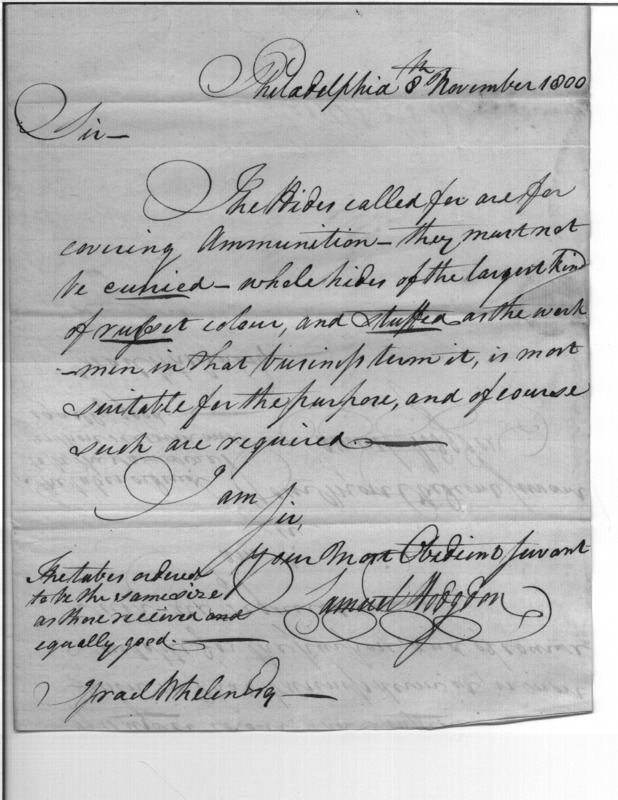 Philadelphia 8th November 1800
Sir—
The Hides called for are for
covering Ammunition — they must not
be curried — whole hides of the largest kind
of russet colour, and stuffed as the work
-men in that business term it, is most
suitable for the purpose, and of course
such are required.
I am
Sir,
your Most Obedient Servant
Samuel Hodgdon
The tubes ordered
to be the same size
as those received and
equally good.
Israel Whelen Esq